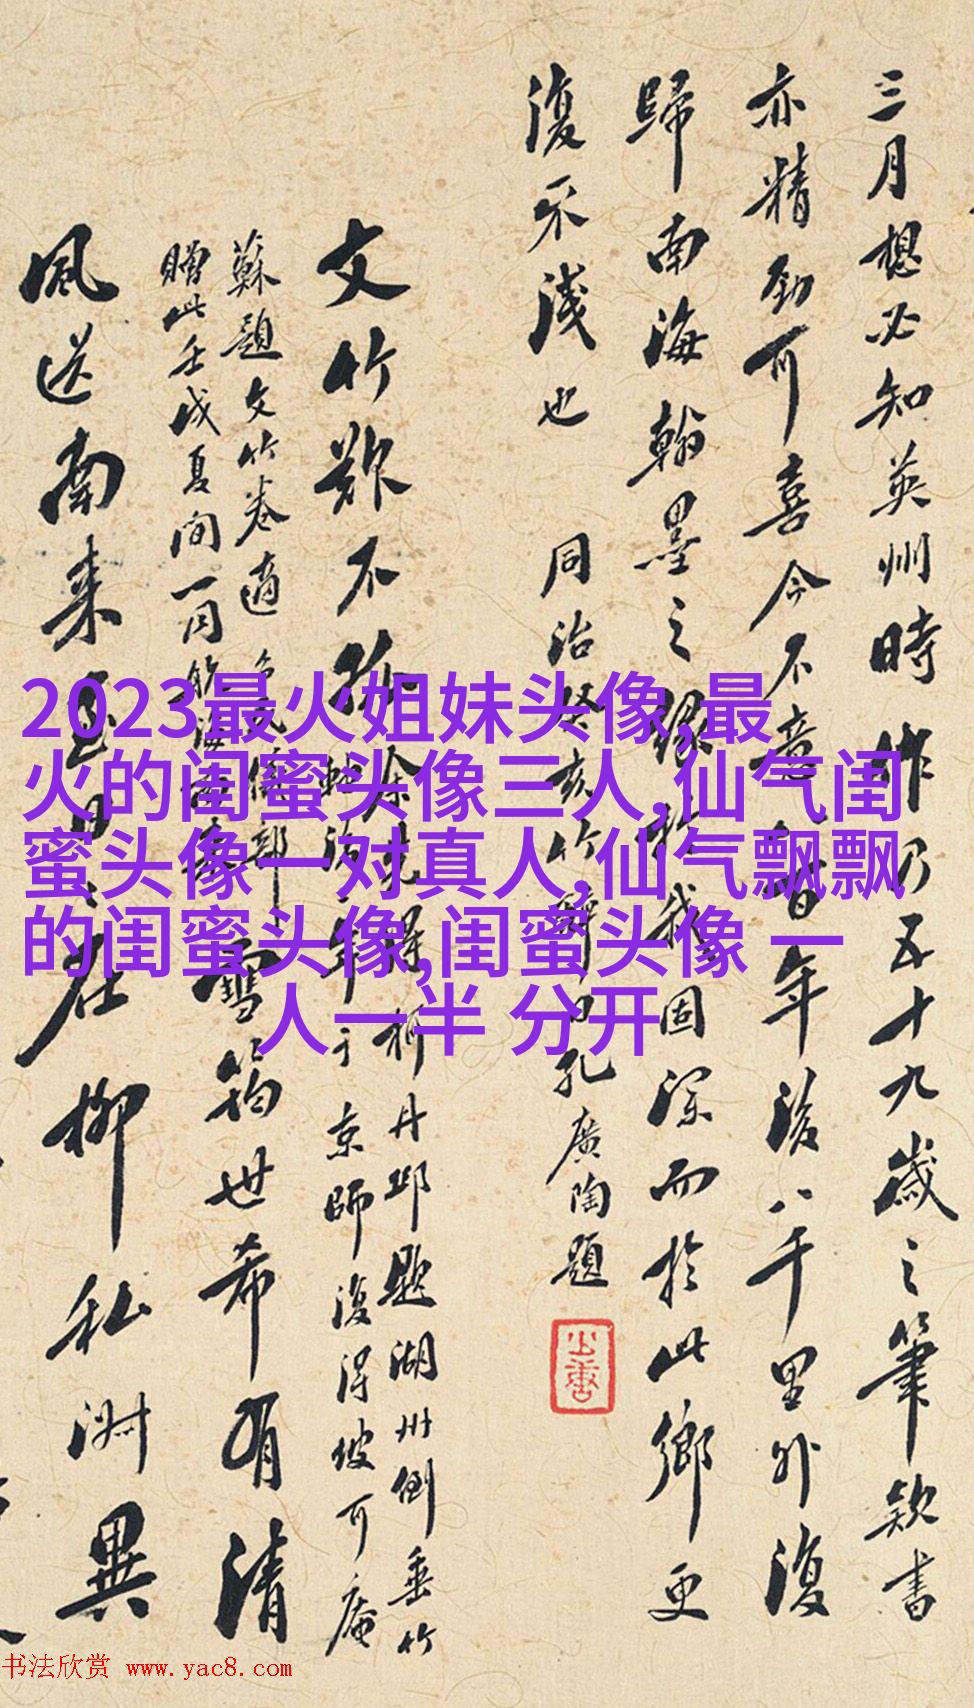 三月想必知英州時昨乃五十九歲之筆款書
亦精勁可喜今不意百年後八千里外復
歸南海翰墨之緣於我固深而於此鄉更
復不淺也 同治癸亥竹醉日孔廣陶題
文竹歟不孫
柯丹邱題湖州倒垂竹
京師復得坡可庵
蘇題文竹卷適
雪筠世希有清
贈此壬戌夏間一月
風送南来
君柳私淑異
2023最火姐妹头像,最
火的闺蜜头像三人,仙气闺
蜜头像一对真人,仙气飘飘
的闺蜜头像,闺蜜头像 一
人一半 分开
书法欣赏 www.yac8.com